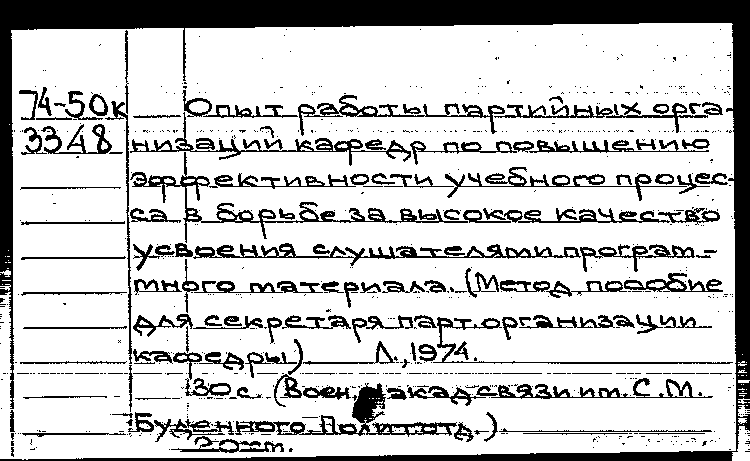 74-50к Опыт работы партийных орга-
3348 низаций кафедр по повышению
эффективности учебного процес-
са в борьбе за высокое качество
усвоения слушателями програм-
много материала. (Метод. пособие
для секретаря парт. организации
кафедры) Л., 1974.
30 с. (Воен. акад связи им. С.М.
Буденного. Политотд.).
20 см.